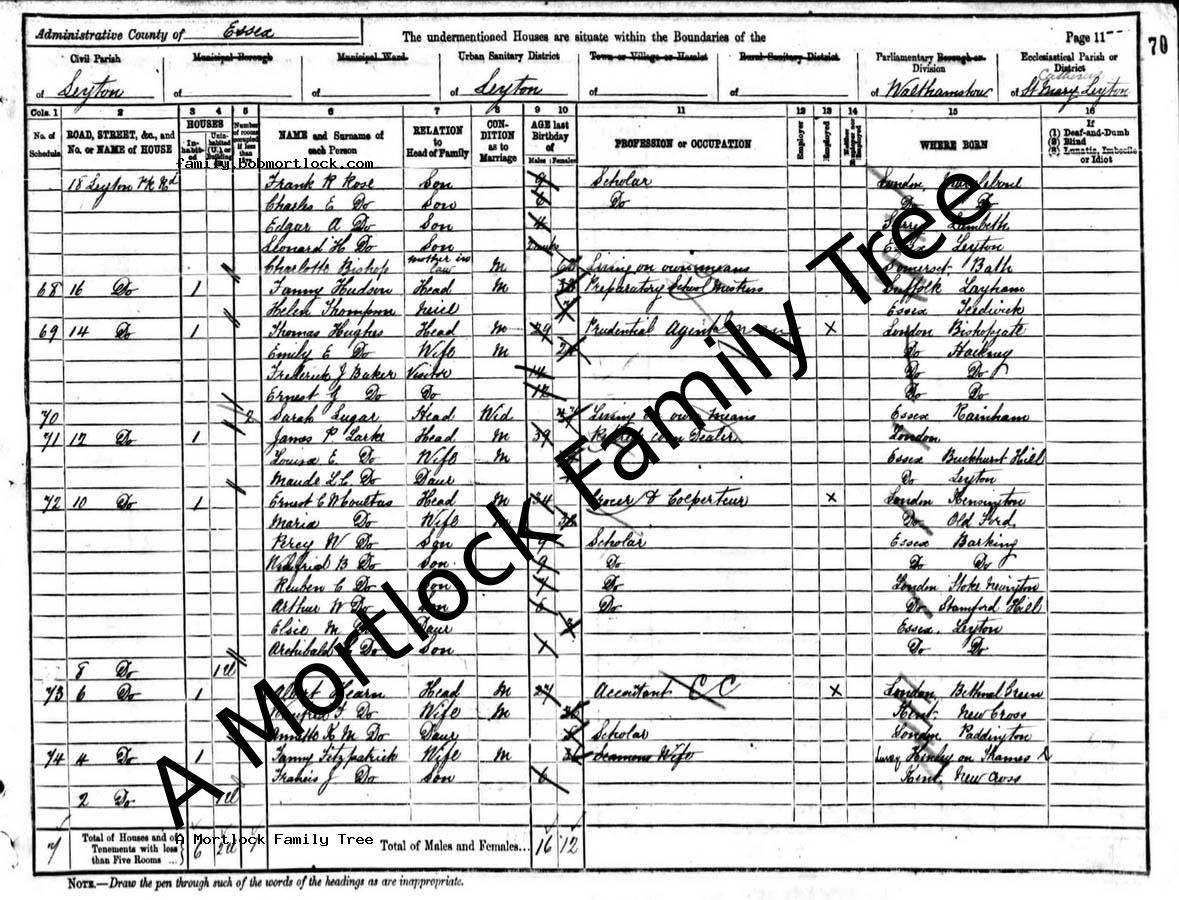 Administrative County of Essex
The undermentioned Houses are situate within the Boundaries of the
Page 11
70
Civil Parish
Municipal Borough
Municipal Ward
Urban Sanitary District
Town or Village or Hamlet
Rural Sanitary District
Parliamentary Borough or Division
Ecclesiastical Parish or District
of Leyton
of
of
of Leyton
of
of
of Walthamstow
of St Mary Leyton
Cols. 1 2 3 4 5 6 7 8 9 10 11 12 13 14 15 16
No. of Schedule
ROAD, STREET, &c., and No. or NAME of HOUSE
HOUSES
Inhabited
Uninhabited (U.) or Building
Number of rooms occupied if less than
NAME and Surname of each Person
RELATION to Head of Family
CONDITION as to Marriage
AGE last Birthday of
Males
Females
PROFESSION or OCCUPATION
Employer
Employed
WHERE BORN
If
(1) Deaf-and-Dumb
(2) Blind
(3) Lunatic, Imbecile or Idiot
family.bobmortlock.com
18 Leyton Pk Rd Frank R Rose Son 9 Scholar London
Charles E Do Son 6 Do Do Do
Edgar A Do Son 4 Lambeth
Leonard H Do Son Essex Leyton
Charlotte Bishop mother in law M Living on own means Somerset Bath
68 16 Do 1 Fanny Hudson Head M Preparatory School Mistress Suffolk Layham
Helen Thompson Neice Essex
69 14 Do 1 Thomas Hughes Head M 29 Prudential Agent X London Bishopgate
Emily E Do Wife M Do Hackney
Frederick J Baker Visitor 14 Do Do
Ernest G Do Do 12 Do Do
70 2 Sarah Lugar Head Wid Living on own means Essex Rainham
71 12 Do 1 James P Larke Head M 39 Corn Dealer London
Louisa E Do Wife M Essex Buckhurst Hill
Maude L.C. Do Daur Do Leyton
72 10 Do 1 Ernest E Head M 34 Grocer & X London Kensington
Maria Do Wife Do Old Ford
Percy W Do Son 9 Scholar Essex Barking
Wilfrid B Do Son 9 Do Do Do
Reuben C Do Son Do London Stoke Newington
Arthur W Do Son Do Do Stamford Hill
Elsie M Daur Essex Leyton
Archibald Do Son Do Do
8 Do 1U
73 6 Do 1 Albert Hearn Head M 27 Accountant CC X London Bethnal Green
Do Wife M Kent New Cross
Annette K M Do Daur Scholar London Paddington
74 4 Do 1 Fanny Fitzpatrick Wife M Seamans Wife Henley on Thames
Francis J Do Son 6 Kent New Cross
2 Do 1U
7 Total of Houses and of Tenements with less than Five Rooms ... 6 2U 1
Total of Males and Females... 16 12
A Mortlock Family Tree
A Mortlock Family Tree
NOTE.—Draw the pen through such of the words of the headings as are inappropriate.